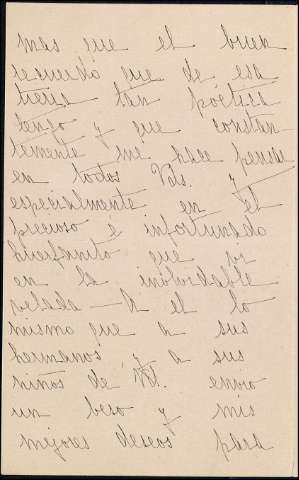 mas que el buen
recuerdo que de esa
tierra tan poética
tengo y que constan-
temente me hace pensar
en todos Vds. y
especialmente en el
precioso e infortunado
huerfanito que vi
en la inolvidable
velada — A el lo
mismo que a sus
hermanos y a sus
niños de Vd. envio
un beso y mis
mejores deseos para